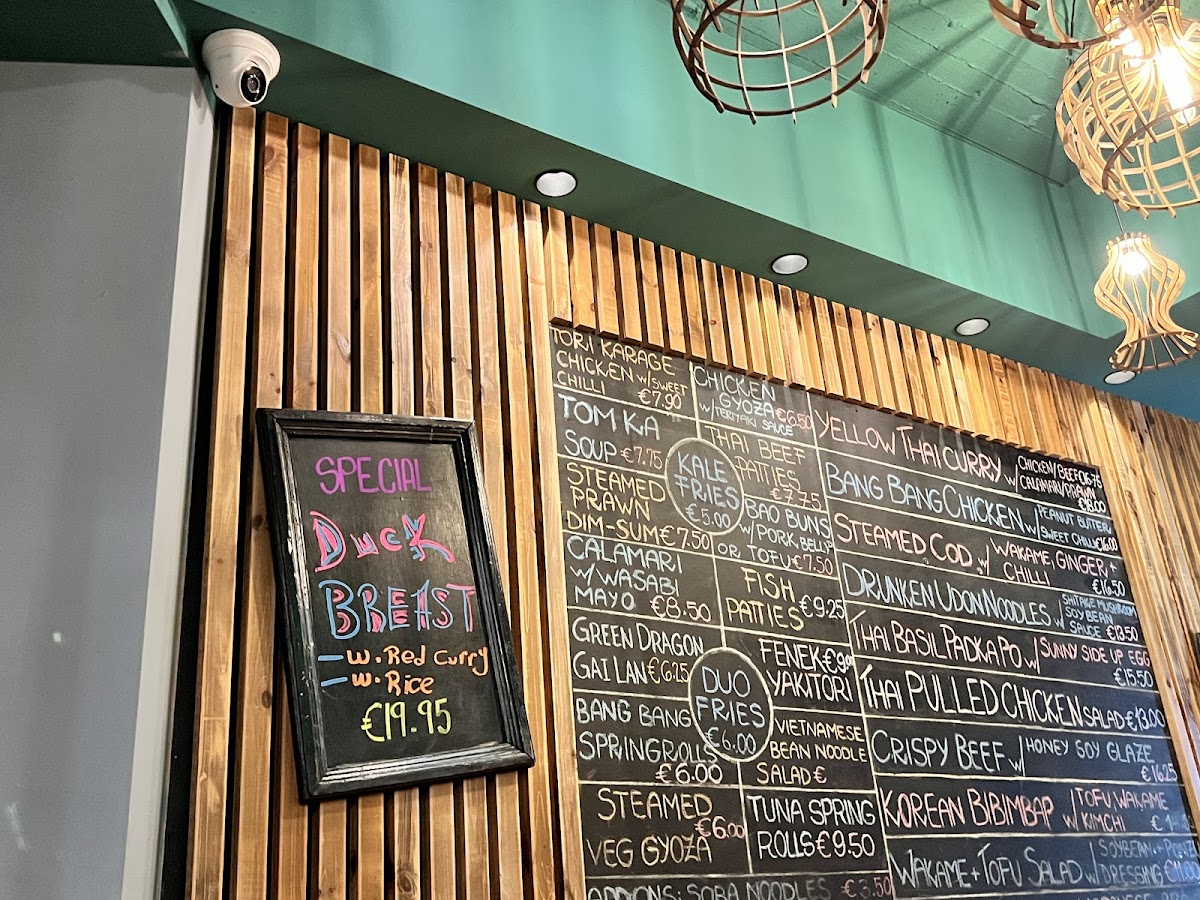 SPECIAL
DUCK
BREAST
- W. Red Curry
- W. Rice
€19.95
TORI KARAGE
CHICKEN W/SWEET
CHILLI €7.90
TOM KA
SOUP €7.75
STEAMED
PRAWN
DIM-SUM €7.50
CALAMARI
W/ WASABI
MAYO €8.50
GREEN DRAGON
GAI LAN €6.25
BANG BANG
SPRINGROLLS
€6.00
STEAMED
€6.00
VEG GYOZA
KALE
FRIES
€5.00
DUO
FRIES
€6.00
CHICKEN
GYOZA €6.50
W/TERIYAKI SAUCE
THAI BEEF
PATTIES
€7.75
BAO BUNS
W/ PORK BELLY
OR TOFU €7.50
FISH
PATTIES €9.25
FENEK
YAKITORI
VIETNAMESE
BEAN NOODLE
SALAD €
TUNA SPRING
ROLLS €9.50
ADD-ONS: SOBA NOODLES €3.50
YELLOW THAI CURRY W/ CHICKEN/BEEF
CALAMARI/PRAWN
€18.00
BANG BANG CHICKEN W/ PEANUT BUTTER
SWEET CHILLI €16.00
STEAMED COD W/ WAKAME, GINGER, +
CHILLI
€16.50
DRUNKEN UDON NOODLES W/ SHITAKE MUSHROOM
SOY BEAN
SAUCE €13.50
THAI BASIL PADKAPO W/ SUNNY SIDE UP EGG
€15.50
THAI PULLED CHICKEN SALAD €13.00
CRISPY BEEF W/ HONEY SOY GLAZE
€16.25
KOREAN BIBIMBAP W/ TOFU, WAKAME
KIMCHI €
WAKAME + TOFU SALAD W/ SOYBEAN +
DRESSING